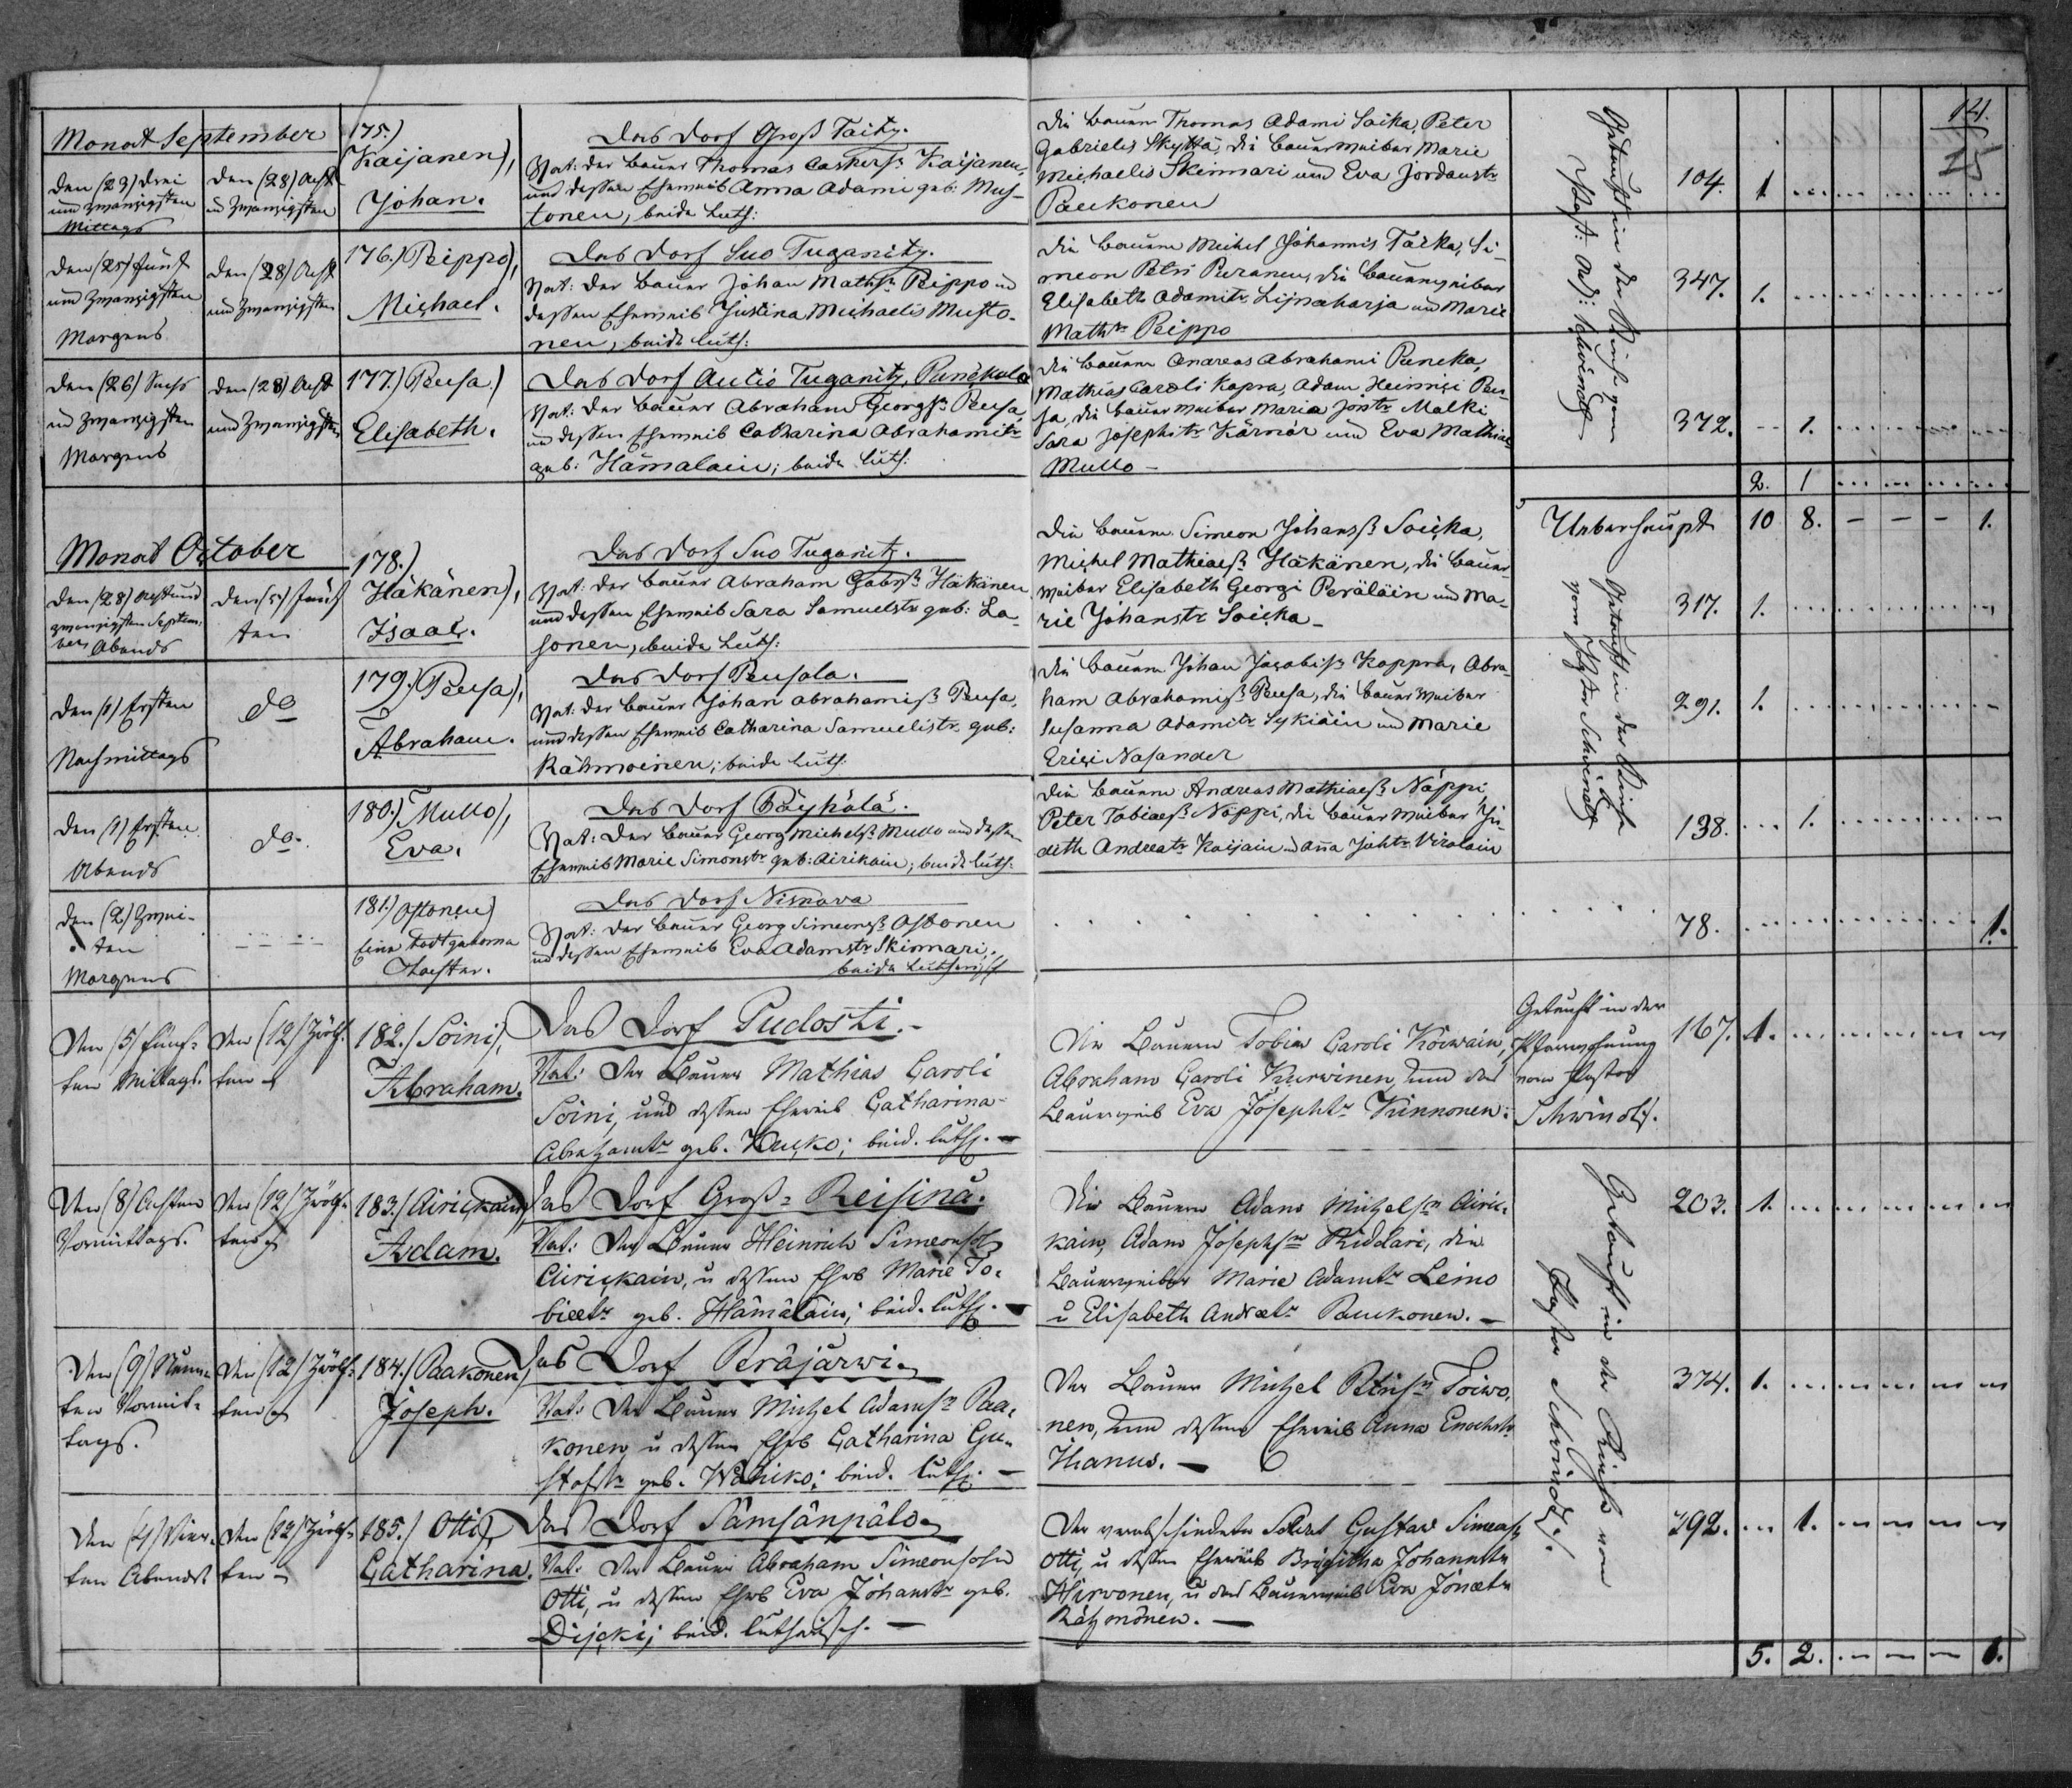 14.
15
Monat September
den (23) drei
und zwanzigsten
Mittags
den (28) Acht
und zwanzigsten
175.)
Kaijanen),
Johan.
Das Dorf Groß Taitz.
Vat: der Bauer Thomas Caspersß Kaijanen,
und dessen Eheweib Anna Adami geb: Mus-
tonen, beide Luth:
Die Bauern Thomas Adami Saika, Peter
Gabrielis Skyttä, die Bauerweiber Marie
Michaelis Skinnari und Eva Jordanstr
Paukonen
Getauft in der Kirche vom
Past: Adj: Schwindt
104. 1
den (25) fünf
und zwanzigsten
Morgens
den (28) Acht
und zwanzigsten
176.) Peippo),
Michael.
Das Dorf Suo Tuganitz.
Vat: der Bauer Johan Mathsß Peippo und
dessen Eheweib Justina Michaelis Musto-
nen, beide luth:
Die Bauern Michel Johannis Tarka, Si-
meon Petri Puranen, die Bauerweiber
Elisabeth Adamitr Lijnaharja und Marie
Mathtr Peippo
347. 1.
den (26) Sechs
und zwanzigsten
Morgens
den (28) Acht
und zwanzigsten
177.) Peusa)
Elisabeth.
Das Dorf Autio Tuganitz, Punckula
Vat: der Bauer Abraham Georgsß Peusa
und dessen Eheweib Catharina Abrahamitr
geb: Hämalain; beide luth:
Die Bauern Andreas Abrahami Puncka,
Mathias Caroli Kapra, Adam Heinrici Peu-
sa, die Bauerweiber Maria Joistr Malki
Sara Josephstr Kärnär und Eva Mathiae
Mullo -
372. 1.
2. 1
Ueberhaupt 10 8. - - - 1.
Monat October
den (28) Acht und
zwanzigsten Septem-
ber Abends
den (5) fünf
ten
178.)
Häkänen),
Isaac.
Das Dorf Suo Tuganitz.
Vat: der Bauer Abraham Gabrsß Häkänen
und dessen Eheweib Sara Samuelstr geb: La-
sonen, beide Luth:
Die Bauern Simeon Johansß Soicka,
Michel Mathiaesß Häkänen, die Bauer-
weiber Elisabeth Georgi Peräläin und Ma-
rie Johanstr Soicka -
Getauft in der Kirche
vom Pastor Schwindt
317. 1.
den (1) Ersten
Nachmittags
do
179.) Peusa),
Abraham.
Das Dorf Peusala.
Vat: der Bauer Johan Abrahamisß Peusa,
und dessen Eheweib Catharina Samuelistr geb:
Rähmoinen; beide Luth:
Die Bauern Johan Jacobisß Koppra, Abra-
ham Abrahamisß Peusa, die Bauerweiber
Susanna Adamitr Sykiäin und Marie
Erici Nasander
291. 1.
den (1) Ersten
Abends
do.
180.) Mullo),
Eva.
Das Dorf Päykälä.
Vat: der Bauer Georg Michelsß Mullo und dessen
Eheweib Marie Simonstr geb: Airikain; beide luth:
Die Bauern Andreas Mathiaesß Näppi,
Peter Tobiaesß Näppi, die Bauerweiber Ju-
dith Andreatr Kaijain und Anna Johtr Virolain
138. 1.
den (2) Zwei-
ten
Morgens
181.) Ostonen)
Eine Todtgeborne
Tochter.
Das Dorf Niskova
Vat: der Bauer Georg Simeonsß Ostonen
und dessen Eheweib Eva Adamstr Skinnari,
beide lutherisch
78. 1.
Den (5) Fünf-
ten Mittags.
Den (12) Zwölf-
ten
182.) Soini),
Abraham.
Das Dorf Pudosti.-
Vat: Der Bauer Mathias Caroli
Soini, und dessen Eheweib Catharina
Abrahamtr geb. Kucko; beid. luth. -
Die Bauern Tobias Caroli Koiwain,
Abraham Caroli Kurwinen, und das
Bauerweib Eva Josephtr Kinnonen.
Getauft in der
Pfarrwohnung
vom Pastor
Schwindt.
167. 1.
Den (8) Achten
Vormittags.
Den (12) Zwölf-
ten
183.) Airickain)
Adam.
Das Dorf Groß-Reisinä.
Vat: Der Bauer Heinrich Simeonsohn
Airickain, u dessen Ehwb Marie To-
biaetr geb. Hämäläin; beid. luth. -
Die Bauern Adam Michelsn Airic-
kain, Adam Josephsn Riddari, die
Bauerweiber Marie Adamtr Leino
u Elisabeth Andraetr Paukonen. -
Getauft in der Kirche vom
Pastor Schwindt.
203. 1.
Den (9) Neun-
ten Vormit-
tags.
Den (12) Zwölf-
ten
184.) Paakonen)
Joseph.
Das Dorf Peräjärwi.
Vat: Der Bauer Michel Adamsn Paa-
konen u dessen Ehwb Catharina Gu-
stafstr geb. Wänikö; beid. luth. -
Der Bauer Michel Petrisn Toiwo-
nen, und dessen Eheweib Anna Enochstr
Hanus. -
374. 1.
Den (4) Vier-
ten Abends
Den (12) Zwölf-
ten
185.) Otti),
Catharina.
Das Dorf Sämsänpälo.
Vat: Der Bauer Abraham Simeonsohn
Otti, u dessen Ehwb Eva Johanstr geb.
Dijcki; beid. lutherisch. -
Der verabschiedete Soldat Gustav Simeasß
Otti, u dessen Eheweib Brigitha Johannstr
Hirwonen, u das Bauerweib Eva Jonaetr
Rätzmönen. -
392. 1.
5. 2. - - - 1.